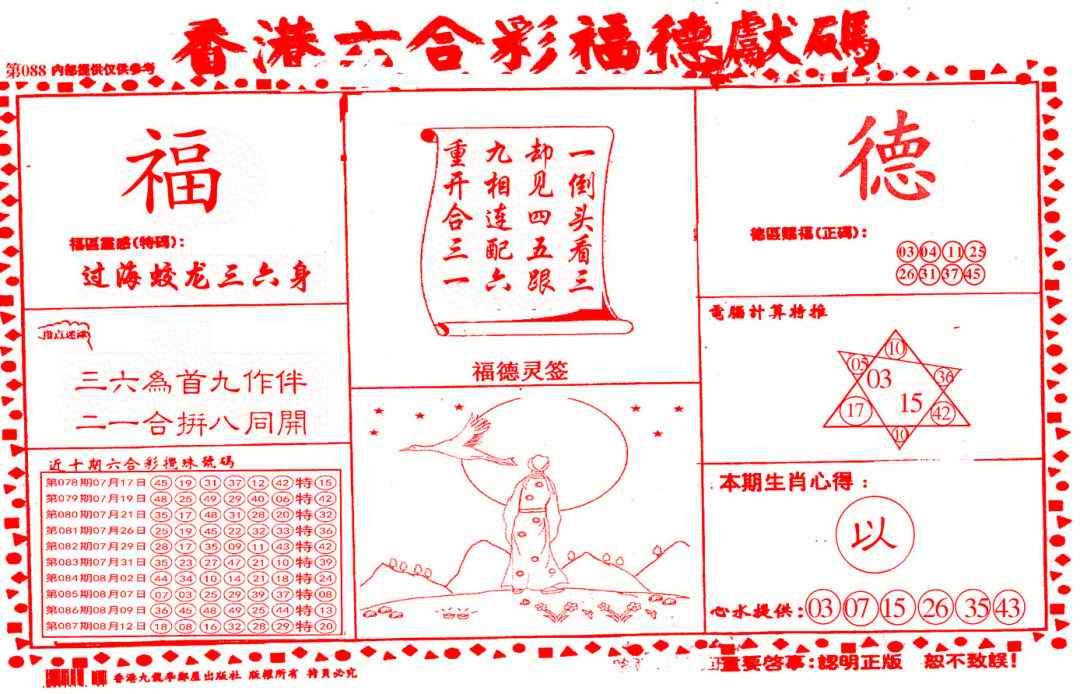 香港六合彩福德獻碼
第088 内部提供仅供参考
福
福區靈感(特碼):
过海蛟龙三六身
指点迷津
三六為首九作伴
二一合拼八同開
近十期六合彩攪珠號碼
第078期07月17日 45 19 31 37 12 42 特 15
第079期07月19日 48 25 49 29 40 06 特 42
第080期07月21日 35 17 48 31 28 20 特 32
第081期07月26日 25 19 45 22 32 33 特 36
第082期07月29日 28 17 35 09 11 43 特 42
第083期07月31日 35 23 27 47 21 10 特 39
第084期08月02日 44 34 10 14 21 18 特 24
第085期08月07日 07 03 25 29 39 37 特 08
第086期08月09日 36 45 48 49 25 44 特 13
第087期08月12日 18 08 16 32 28 29 特 20
一倒头看三
却见四五跟
九相连配六
重开合三一
福德灵签
德
德區賜福(正碼):
03 04 11 25
26 31 37 45
電腦計算特推
10
05 03 36
17 15 42
10
本期生肖心得:
以
心水提供: 03 07 15 26 35 43
香港九龍 出版社 版權所有 特員必究
重要啓事:認明正版 恕不致誤!